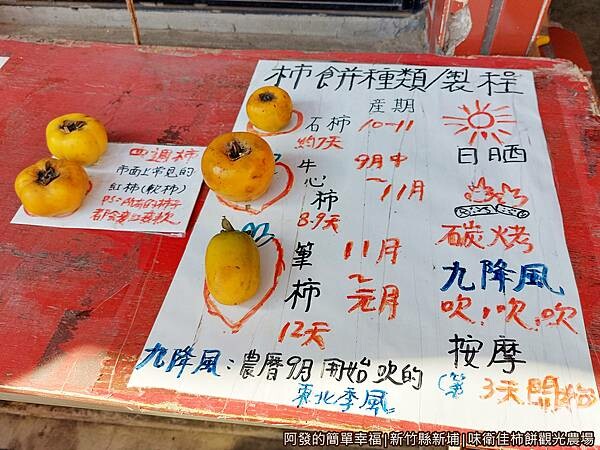 柿餅種類/製程
產期
石柿 10-11
約7天
牛心柿 9月中~11月
8-9天
筆柿 11月~元月
12天
日晒
碳烤
九降風
吹!吹,吹
按摩
(第3天開始
九降風:農曆9月開始吹的
東北季風
四週柿
市面上常見的
紅柿(軟柿)
阿發的簡單幸福|新竹縣新埔|味衛佳柿餅觀光農場